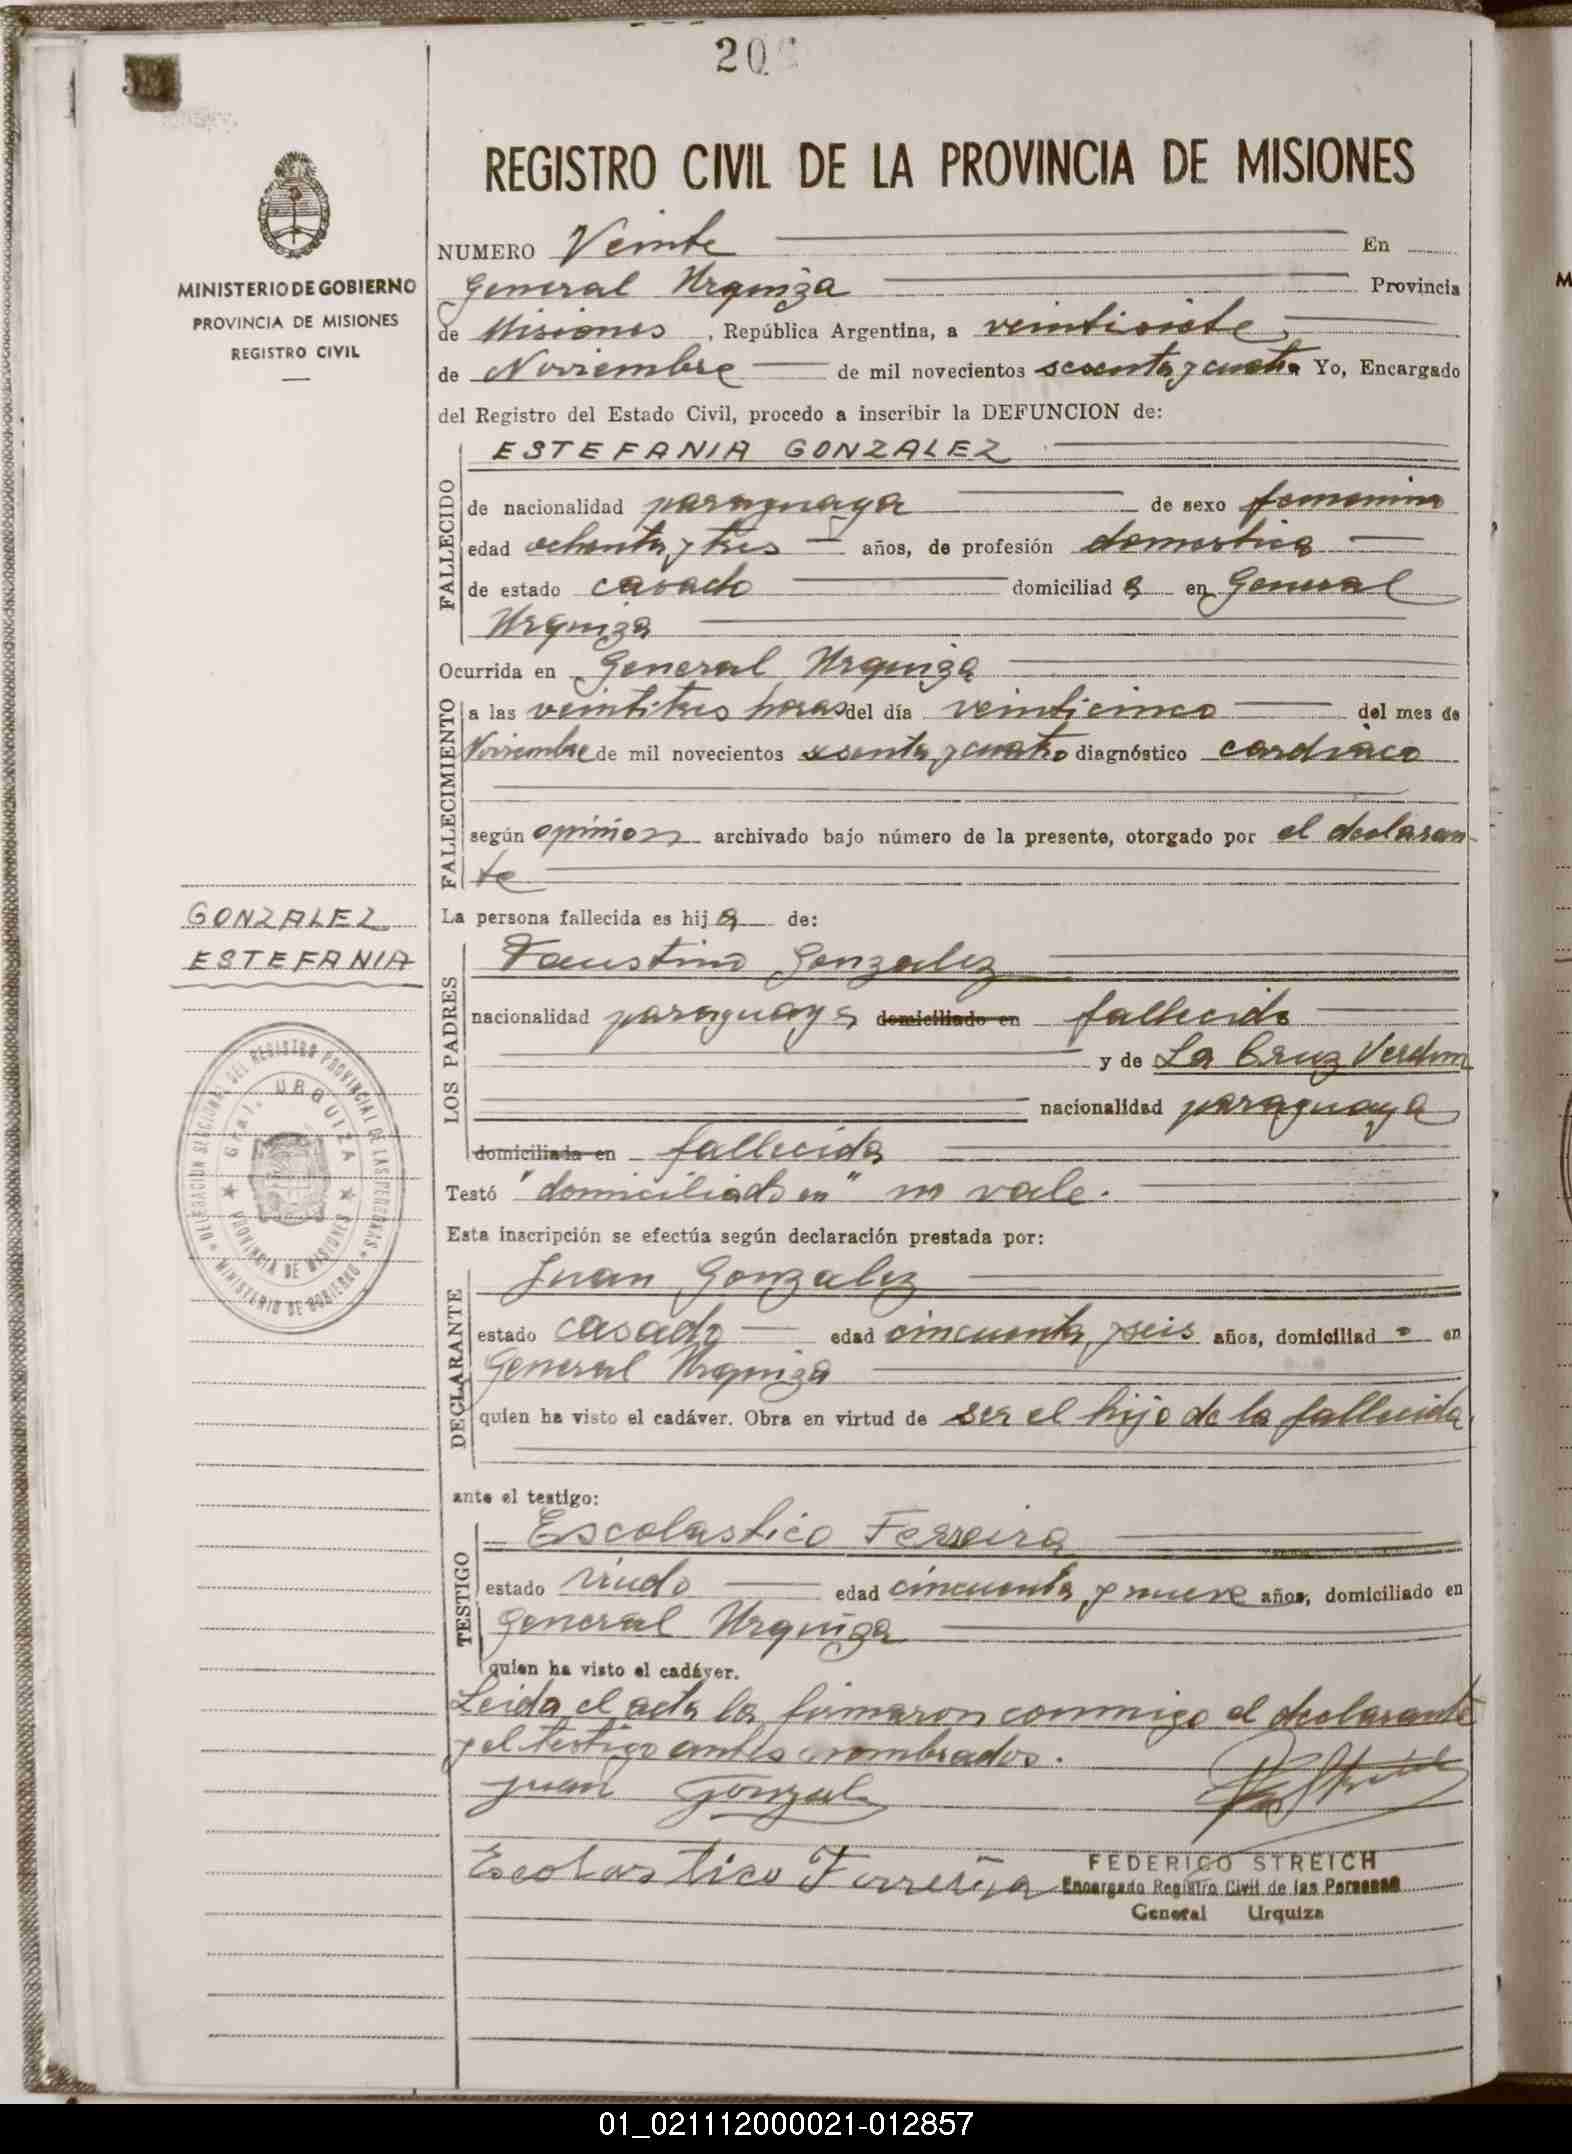 20
REGISTRO CIVIL DE LA PROVINCIA DE MISIONES
MINISTERIO DE GOBIERNO
PROVINCIA DE MISIONES
REGISTRO CIVIL
NUMERO Veinte En
General Urquiza Provincia
de Misiones, República Argentina, a veintisiete
de Noviembre de mil novecientos sesenta y cuatro Yo, Encargado
del Registro del Estado Civil, procedo a inscribir la DEFUNCION de:
FALLECIDO
ESTEFANIA GONZALEZ
de nacionalidad paraguaya de sexo femenino
edad ochenta y tres años, de profesión domestica
de estado casado domiciliad a en General
Urquiza
Ocurrida en General Urquiza
FALLECIMIENTO
a las veintitres horas del día veinticinco del mes de
Noviembre de mil novecientos sesenta y cuatro diagnóstico cardiaco
según opinion archivado bajo número de la presente, otorgado por el declaran-
te
GONZALEZ
ESTEFANIA
La persona fallecida es hij a de:
LOS PADRES
Faustino Gonzalez
nacionalidad paraguaya domiciliado en fallecido
y de La Cruz
nacionalidad paraguaya
domiciliada en fallecida
Testó "domiciliado en" no vale.
DELEGACION SECCIONAL DEL REGISTRO PROVINCIAL DE LAS PERSONAS
MINISTERIO DE GOBIERNO
Gral. URQUIZA
PROVINCIA DE MISIONES
Esta inscripción se efectúa según declaración prestada por:
DECLARANTE
Juan Gonzalez
estado casado edad cincuenta y seis años, domiciliad o en
General Urquiza
quien ha visto el cadáver. Obra en virtud de ser el hijo de la fallecida,
ante el testigo:
TESTIGO
Escolastico Ferreira
estado viudo edad cincuenta y nueve años, domiciliado en
General Urquiza
quien ha visto el cadáver.
Leida el acta la firmaron conmigo el declarante
y el testigo antes nombrados.
Juan Gonzalez
Escolastico Ferreira
FEDERICO STREICH
Encargado Registro Civil de las Personas
General Urquiza
01_021112000021-012857